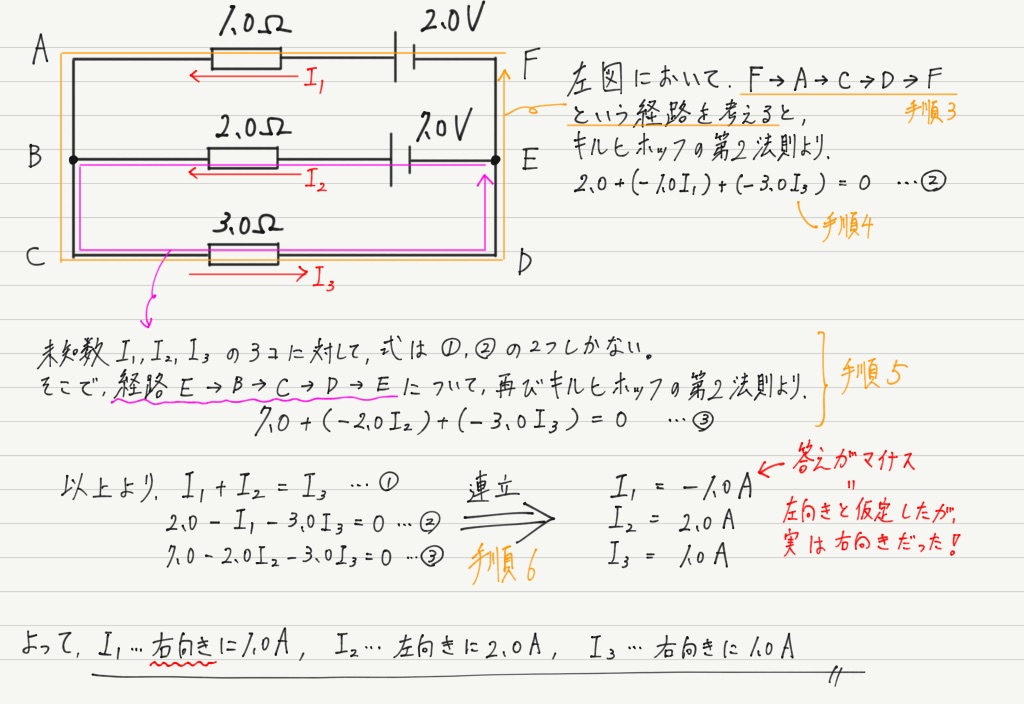 1.0Ω 2.0V
A F
I₁
2.0Ω 7.0V
B E
I₂
3.0Ω
C D
I₃
左図において、F→A→C→D→F
という経路を考えると、 手順3
キルヒホッフの第2法則より、
2.0+(-1.0I₁)+(-3.0I₃)=0 …②
手順4
未知数 I₁, I₂, I₃ の3コに対して、式は①,②の2つしかない。
そこで、経路 E→B→C→D→E について、再びキルヒホッフの第2法則より、
7.0+(-2.0I₂)+(-3.0I₃)=0 …③
手順5
以上より、I₁+I₂=I₃ …①
2.0-I₁-3.0I₃=0 …②
7.0-2.0I₂-3.0I₃=0 …③
連立
手順6
I₁ = -1.0A
I₂ = 2.0A
I₃ = 1.0A
答えがマイナス
"
左向きと仮定したが、
実は右向きだった!
よって、I₁…右向きに1.0A, I₂…左向きに2.0A, I₃…右向きに1.0A